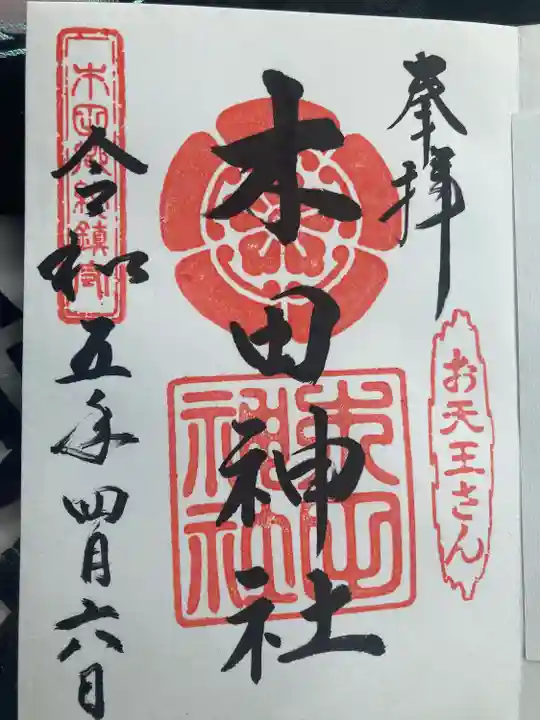 奉拝
お天王さん
木田神社
木田神社
木田郷総鎮守
令和五年四月六日